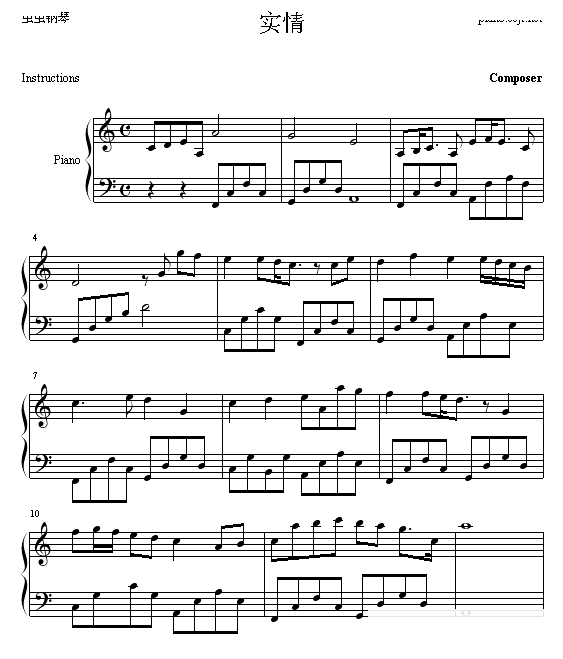 虫虫钢琴
实情
Instructions
Composer
Piano
4
7
10